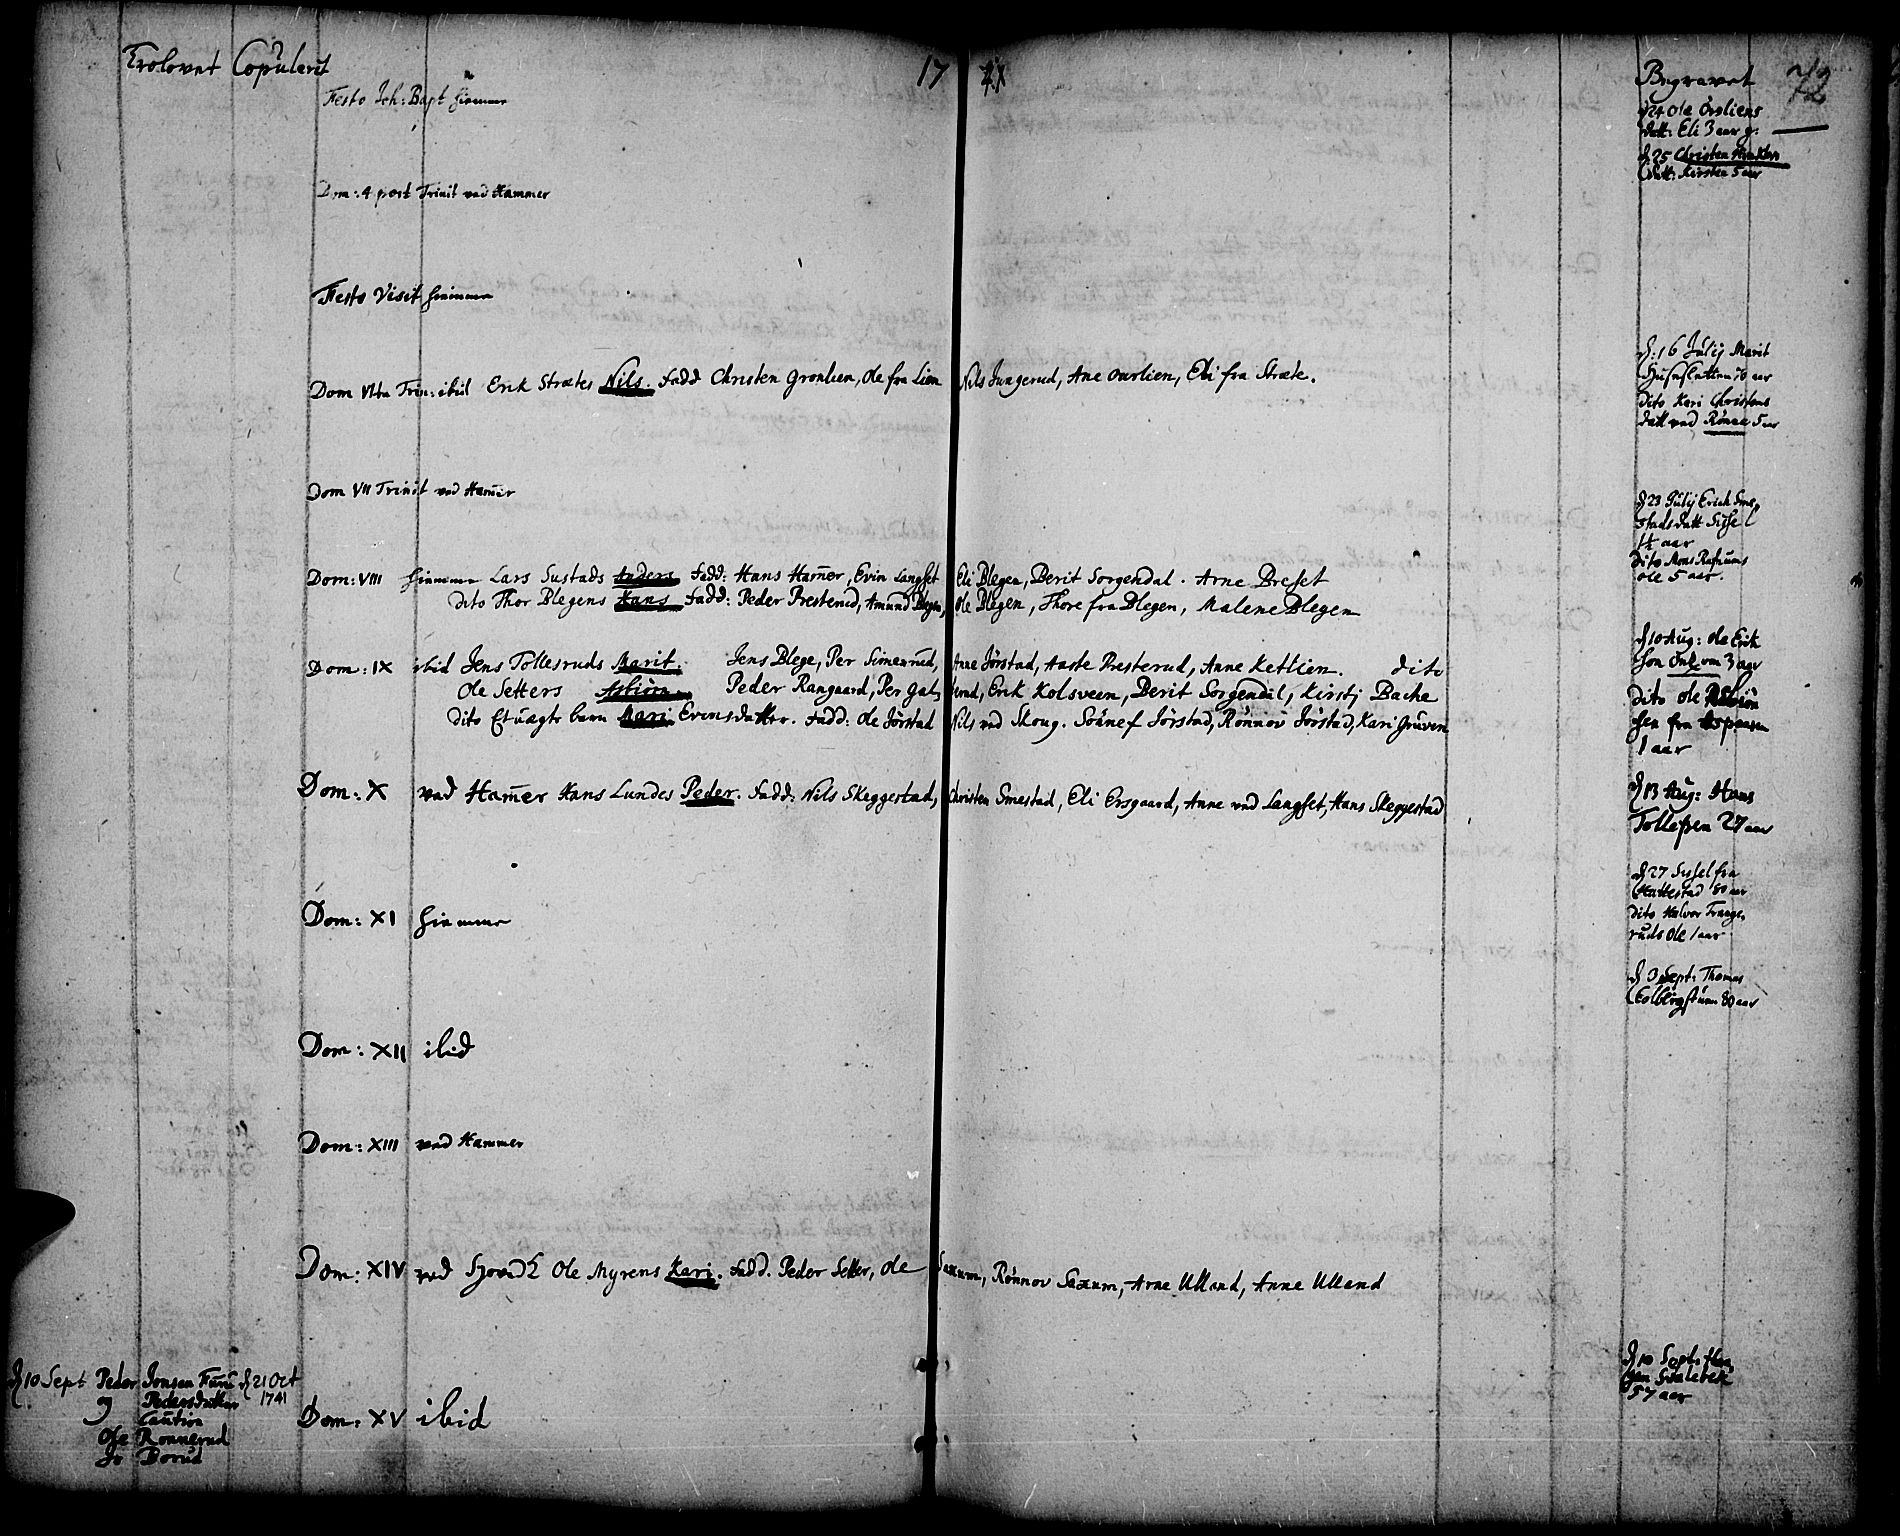 Trolovet Copuleret
17
Begravet
72
Festo Joh: Bapt hiemme
Dom: 4 post Trinit ved Hammer
Festo Visit hiemme
Dom VIta Trin: ibid Erik Strætes Nils. Fadd Christen Gronlien, Ole fra Lien Nils Jungerud, Ane Ourlien, Eli fra Stræte.
Dom VII Trinit ved Ham̄er
Dom: VIII hiemme Lars Sustads Anders Fadd: Hans Ham̄er, Evin Langset Eli Blegen, Berit Sorgendal. Arne Bresset
dito Thor Blegens Hans Fadd: Peder Presterud, Amund Blegen, Ole Blegen, Thore fra Blegen, Malene Blegen
Dom: IX ibid Jens Tollesruds Marit. Jens Blege, Per Simenrud, Anne Jörstad, Aaste Presterud, Anne Kettlien. dito
Ole Setters Peder Rangaard, Per Gutterud, Erik Kolsveen, Berit Sorgendal, Kirstj Bache
dito Et uægte barn Mari Evensdatter. Fadd: Ole Jörstad Nils ved Skoug. Sönnef Jörstad, Rönnov Jörstad, Kari Gruven
Dom: X ved Ham̄er Hans Lundes Peder. Fadd: Nils Skeggestad, Christen Smestad, Eli Ersgaard, Anne ved Langset, Hans Skeggestad
Dom: XI hiemme
Dom: XII ibid
Dom: XIII ved Hammer
Dom: XIV ved Ole Myrens Kari. Fadd. Peder Setter, Ole Saxum, Rönnov Saxum, Arne Ulland, Anne Ulland
Dom: XV ibid
d 10 Sept Peder Jonsen Furu d 21 Oct
og Pedersdatter 1741
Caution
Ole Ronnerud
Jo Borud
d 24 Ole Övsliens
datt: Eli 3 aar g:
d. 25 Christen
datt: Kirsten 5 aar
d: 16 Julij Marit
70 aar
dito Kari Christens
datt ved Rönne 5 aar
d 23 Julij Erich Sme-
stads datt Sissel
1½ aar
dito Mons
Ole 5 aar.
d 10 Aug: Ole Erik
3 aar
dito Ole
sen fra
1 aar
d 13 Aug: Hans
Tollefsen 27 aar
d 27 Sissel fra
Hattestad 80 aar
dito Halvor Trange-
ruds Ole 1 aar
d 3 Sept: Thomas
80 aar
d 10 Sept:
57 aar